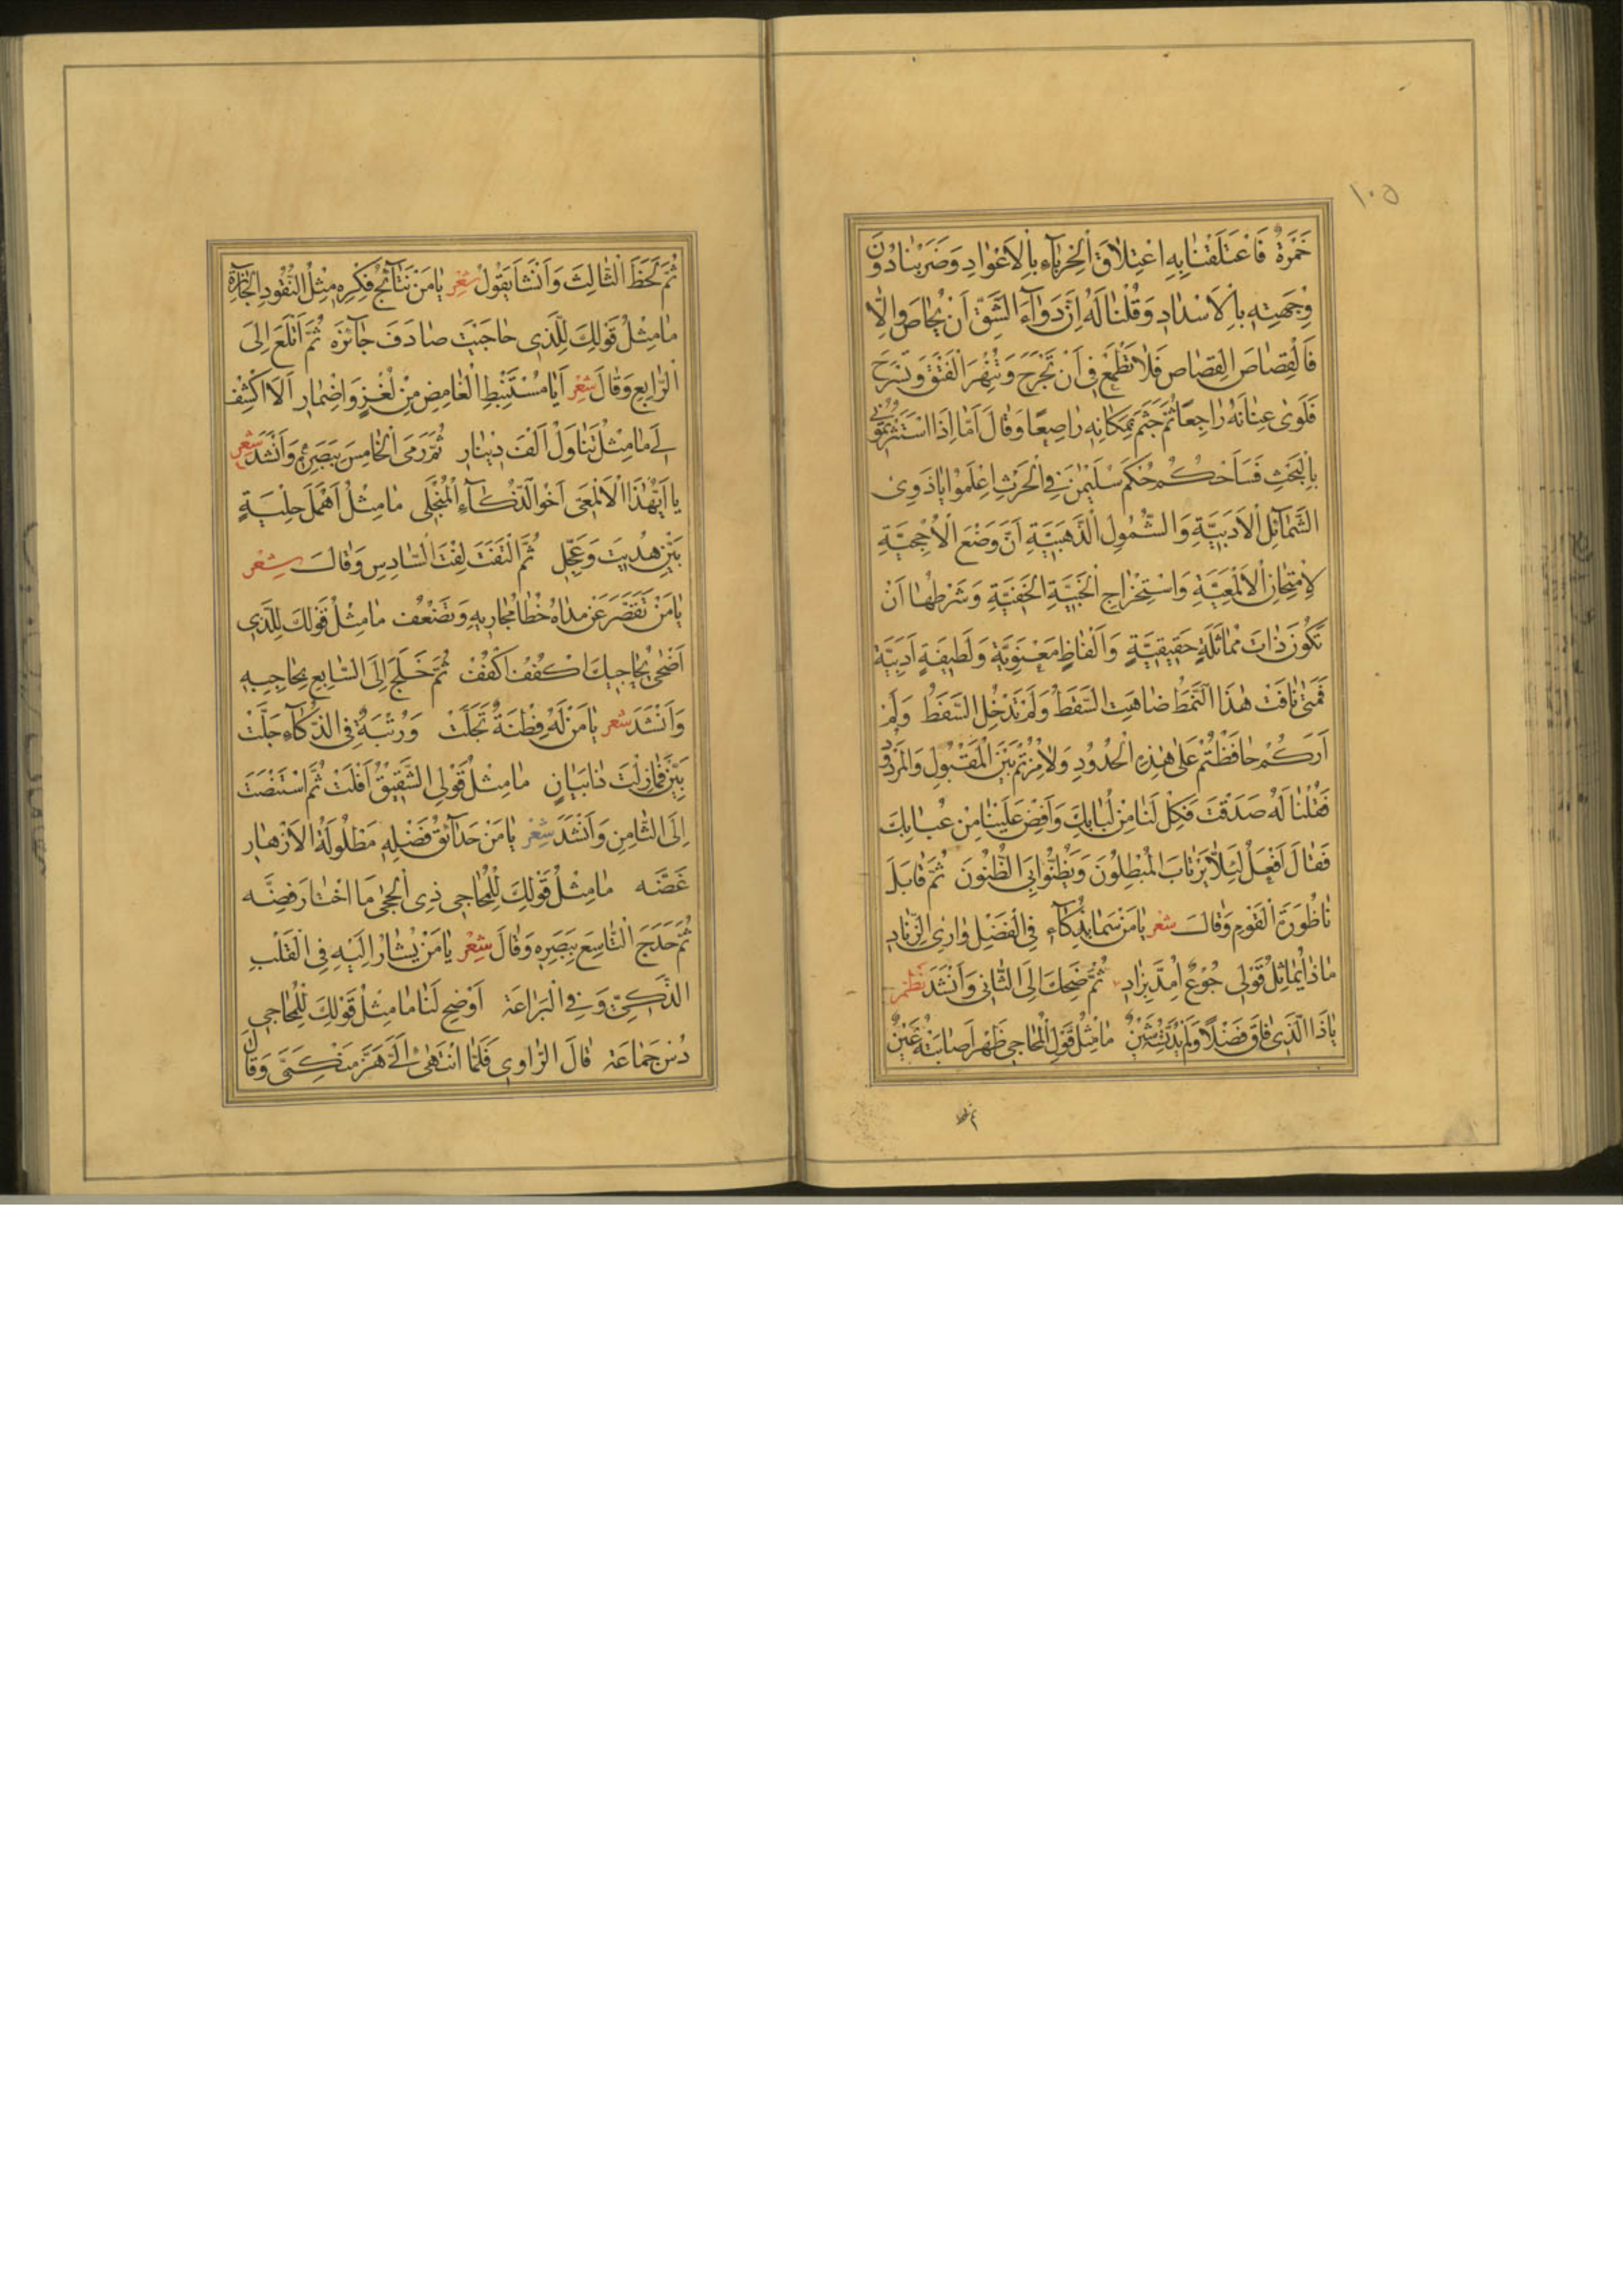 ١٠٥
خَمْرَةٌ فَاعْتَلَقْنَا بِهِ اعْتِلَاقَ الْحِرْبَاءِ بِالْاَعْوَادِ وَضَرَبْنَا دُونَ
وِجْهَتِهِ بِالْاَسْدَادِ وَقُلْنَا لَهُ اِنَّ دَوَآءَ الشَّقِّ اَنْ يُحَاصَ وَاِلَّا
فَالْقِصَاصَ الْقِصَاصَ فَلَا تَطْمَعْ فِى اَنْ تَجْرَحَ وَتُنْهِرَ الْفَتْقَ وَتَسْرَحَ
فَلَوٰى عِنَانَهُ رَاجِعًا ثُمَّ جَثَمَ بِمَكَانِهِ رَاصِعًا وَقَالَ اَمَّا اِذَا اسْتَثَرْتُمُونِى
بِالْبَحْثِ فَسَاَحْكُمُ حُكْمَ سُلَيْمٰنَ فِى الْحَرْثِ اِعْلَمُوا يَا ذَوِى
الشَّمَآئِلِ الْاَدَبِيَّةِ وَالشَّمُولِ الذَّهَبِيَّةِ اَنَّ وَضْعَ الْاُحْجِيَّةِ
لِاِمْتِحَانِ الْاَلْمَعِيَّةِ وَاسْتِخْرَاجِ الْخَبِيَّةِ الْخَفِيَّةِ وَشَرْطُهَا اَنْ
تَكُونَ ذَاتَ مُمَاثَلَةٍ حَقِيقِيَّةٍ وَاَلْفَاظٍ مَعْنَوِيَّةٍ وَلَطِيفَةٍ اَدَبِيَّةٍ
فَمَتٰى نَافَتْ هٰذَا النَّمَطَ ضَاهَتِ السَّقَطَ وَلَمْ تَدْخُلِ السَّفَطَ وَلَمْ
اَرَكُمْ حَافَظْتُمْ عَلٰى هٰذِهِ الْحُدُودِ وَلَا مِزْتُمْ بَيْنَ الْمَقْبُولِ وَالْمَرْدُودِ
فَقُلْنَا لَهُ صَدَقْتَ فَكِلْ لَنَا مِنْ لُبَابِكَ وَاَفِضْ عَلَيْنَا مِنْ عُبَابِكَ
فَقَالَ اَفْعَلُ لِئَلَّا يَرْتَابَ الْمُبْطِلُونَ وَيَظُنُّوا بِىَ الظُّنُونَ ثُمَّ قَابَلَ
نَاظُورَةَ الْقَوْمِ وَقَالَ شعر يَا مَنْ سَمَا بِذَكَآءٍ فِى الْفَضْلِ وَارِى الزِّنَادِ
مَاذَا يُمَاثِلُ قَوْلِى جُوعٌ اُمِدَّ بِزَادِ ثُمَّ ضَحِكَ اِلَى الثَّانِى وَاَنْشَدَ نظم
يَا ذَا الَّذِى فَاقَ فَضْلًا وَلَمْ يُدَنِّسْهُ شَيْنٌ مَا مِثْلُ قَوْلِ الْمُحَاجِى ظَهْرٌ اَصَابَتْهُ عَيْنٌ
ثُمَّ لَحَظَ الثَّالِثَ وَاَنْشَاَ يَقُولُ شعر يَا مَنْ نَتَآئِجُ فِكْرِهِ مِثْلُ النُّقُودِ الْجَآئِزَةِ
مَا مِثْلُ قَوْلِكَ لِلَّذِى حَاجَيْتَ صَادَفَ جَآئِزَةً ثُمَّ اَتْلَعَ اِلَى
الرَّابِعِ وَقَالَ شعر اَيَا مُسْتَنْبِطَ الْغَامِضِ مِنْ لُغْزٍ وَاِضْمَارِ اَلَا اكْشِفْ
لِى مَا مِثْلُ تَنَاوَلْ اَلْفَ دِينَارِ ثُمَّ رَمَى الْخَامِسَ بِبَصَرِهِ وَاَنْشَدَ شعر
يَا اَيُّهٰذَا الْاَلْمَعِى اَخُو الذَّكَآءِ الْمُنْجَلِى مَا مِثْلُ اَهْمَلَ حِلْيَةٍ
بَيِّنْ هُدِيتَ وَعَجِّلِ ثُمَّ الْتَفَتَ لِفْتَ السَّادِسِ وَقَالَ شعر
يَا مَنْ تَقَصَّرَ عَنْ مَدَاهُ خُطَا مُجَارِيهِ وَتَضْعُفْ مَا مِثْلُ قَوْلِكَ لِلَّذِى
اَضْحٰى يُحَاجِيكَ اكْفُفْ اكْفُفْ ثُمَّ خَلَجَ اِلَى السَّابِعِ بِحَاجِبِهِ
وَاَنْشَدَ شعر يَا مَنْ لَهُ فِطْنَةٌ تَجَلَّتْ وَرُتْبَةٌ فِى الذَّكَآءِ جَلَّتْ
بَيِّنْ فَمَا زِلْتَ ذَا بَيَانٍ مَا مِثْلُ قَوْلِى الشَّقِيقُ اَفْلَتْ ثُمَّ اسْتَنْصَتَ
اِلَى الثَّامِنِ وَاَنْشَدَ شعر يَا مَنْ حَدَآئِقُ فَضْلِهِ مَطْلُولَةُ الْاَزْهَارِ
غَضَّه مَا مِثْلُ قَوْلِكَ لِلْمُحَاجِى ذِى الْحِجٰى مَا اخْتَارَ فِضَّه
ثُمَّ حَدَجَ التَّاسِعَ بِبَصَرِهِ وَقَالَ شعر يَا مَنْ يُشَارُ اِلَيْهِ فِى الْقَلْبِ
الذَّكِىِّ وَفِى الْبَرَاعَه اَوْضِحْ لَنَا مَا مِثْلُ قَوْلِكَ لِلْمُحَاجِى
دُسْ جَمَاعَه قَالَ الرَّاوِى فَلَمَّا انْتَهٰى اِلَىَّ هَزَّ مَنْكِبَىَّ وَقَالَ